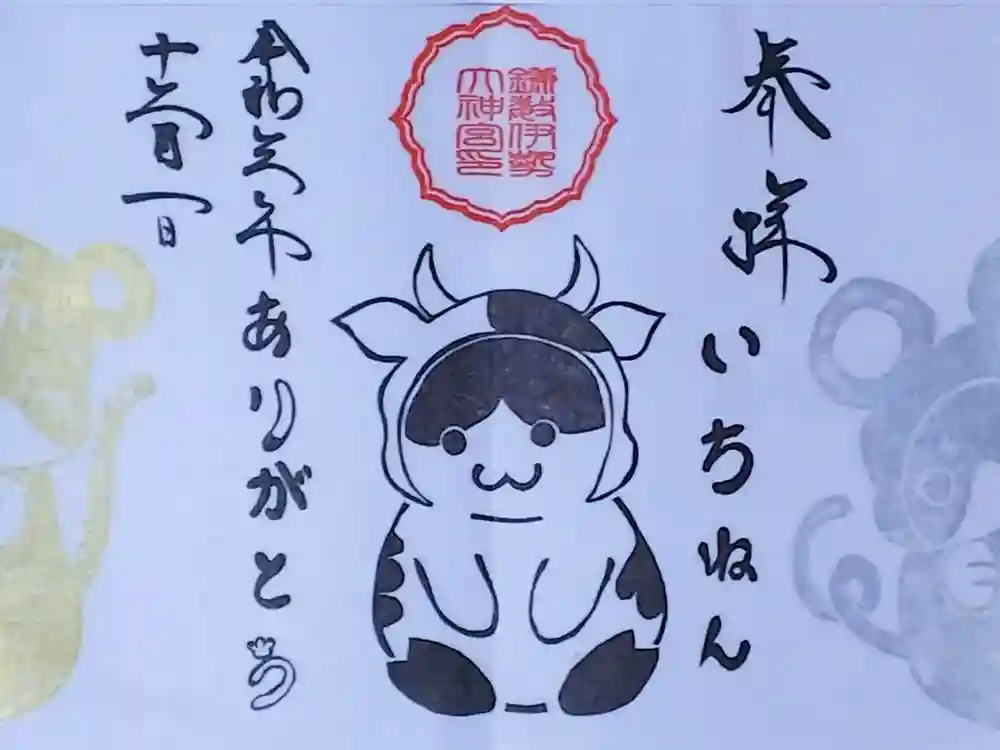 奉拝
いちねん
鎌數伊勢
大神宮印
令和三年
ありがとう
十二月一日